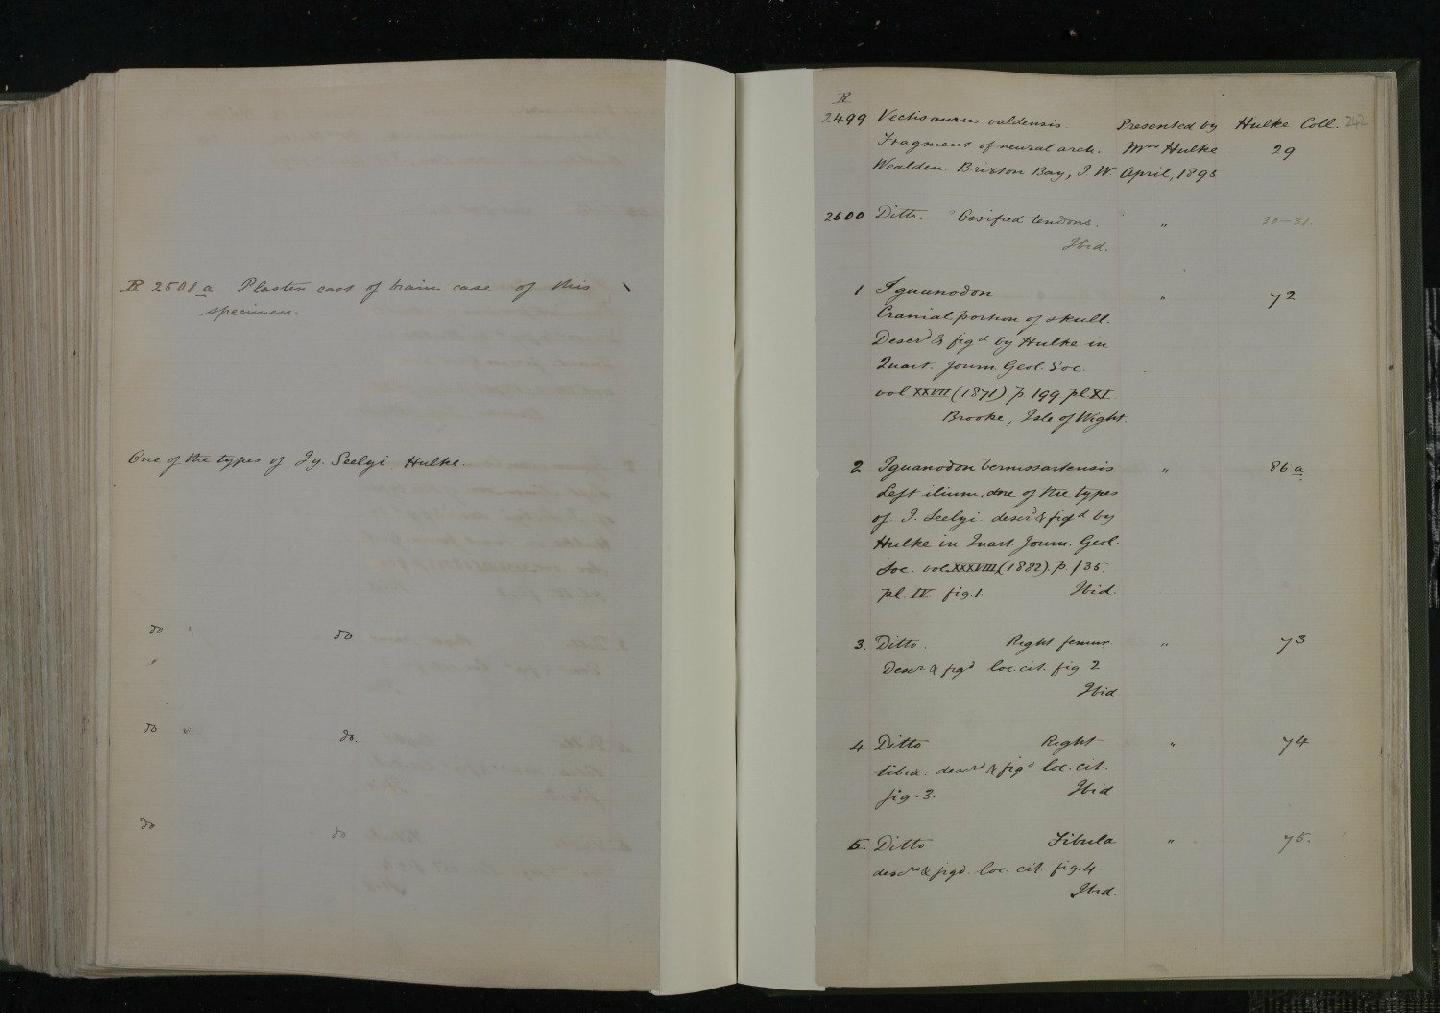 R 2501 a Plaster cast of brain case of this
specimen.
One of the types of Ig. Seelyi Hulke.
do do
"
do " do.
do do
R
2499 Vectisaurus valdensis. Presented by Hulke Coll. 242
Fragment of neural arch. Mrs Hulke 29
Wealden. Brixton Bay, I. W. April, 1895
2500 Ditto. Ossified tendons. " 30-31.
Ibid.
1 Iguanodon " 72
Cranial portion of skull.
Descrd & figd by Hulke in
Quart. Journ. Geol. Soc.
vol XXVII (1871) p. 199 pl XI.
Brooke, Isle of Wight.
2 Iguanodon bernissartensis " 86 a
Left ilium, one of the types
of I. Seelyi descrd & figd by
Hulke in Quart. Journ. Geol.
Soc. vol. XXXVIII (1882) p. 135.
pl. IV fig. 1. Ibid.
3. Ditto. Right femur " 73
Descrd & figd loc. cit. fig 2
Ibid
4 Ditto Right " 74
tibia. descrd & figd loc. cit.
fig. 3. Ibid
5. Ditto Fibula " 75.
descrd & figd. loc. cit. fig. 4
Ibid.